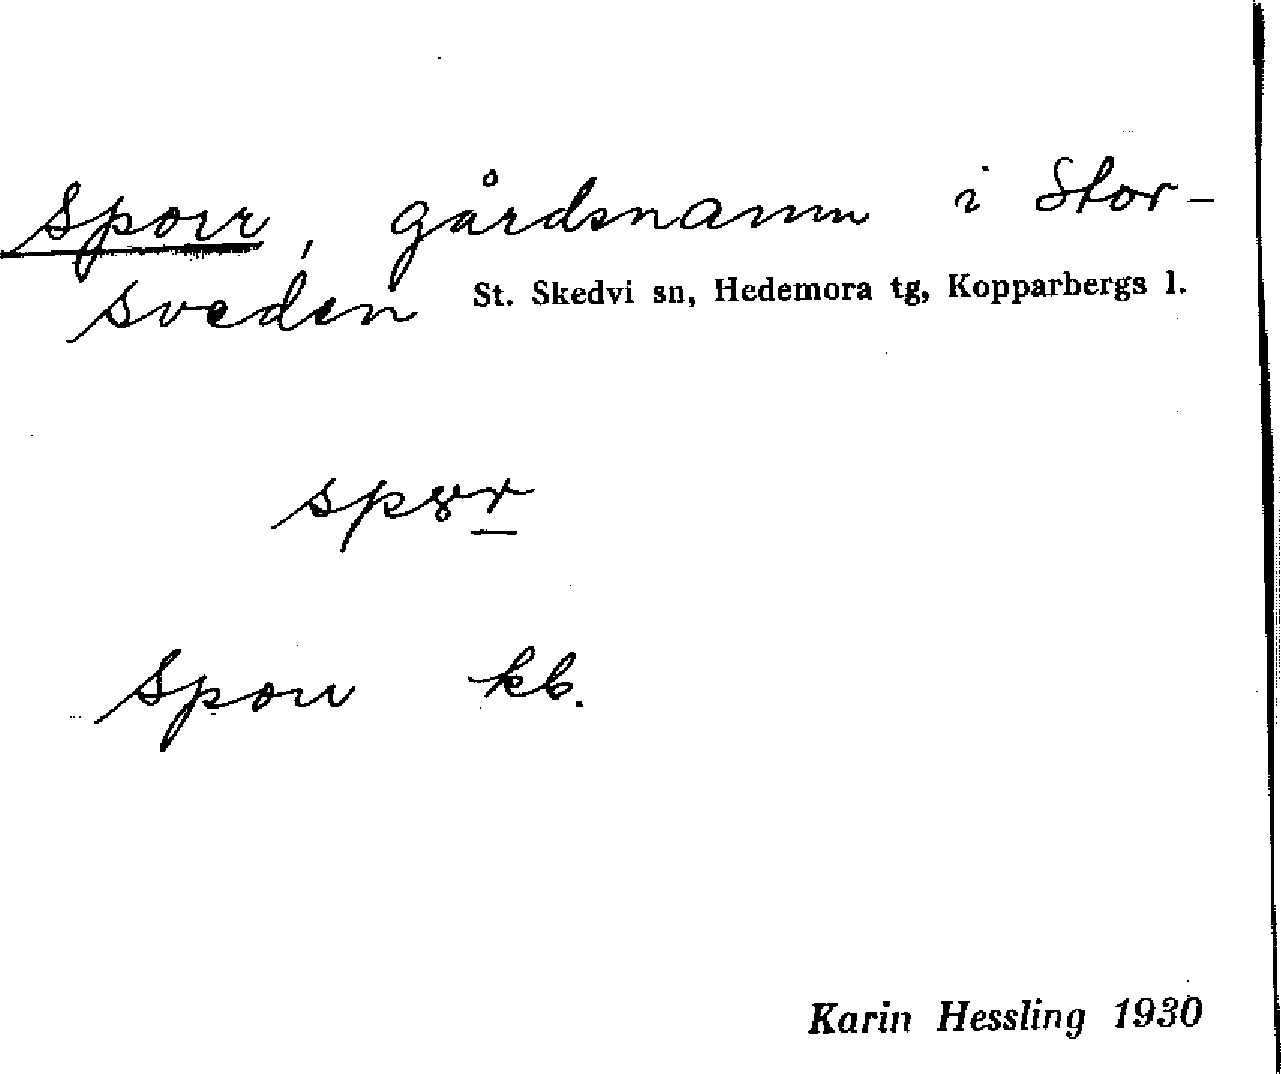 Sporr, gårdsnamn i Stor-
sveden St. Skedvi sn, Hedemora tg, Kopparbergs l.
Sporr kb.
Karin Hessling 1930